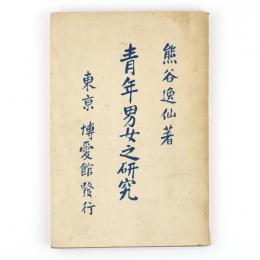 熊谷逸仙著
青年男女之研究
東京 博愛館發行